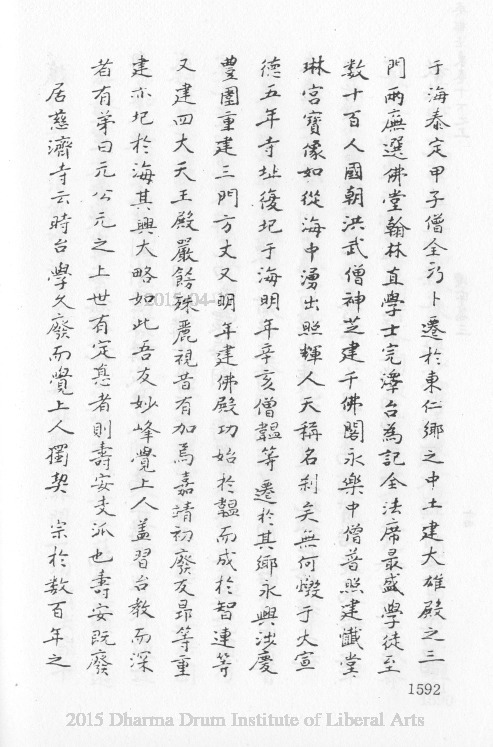 于海泰定甲子僧全乃卜遷於東仁鄉之中土建大雄殿之三
門兩廡選佛堂翰林直學士完澤台為記全法席最盛學徒至
數十百人國朝洪武僧神芝建千佛閣永樂中僧普照建懺堂
琳宮寶像如從海中湧出照輝人天稱名刹矣無何燬于火宣
德五年寺址復圮于海明年辛亥僧韞等遷於其鄉永興涉慶
豐圍重建三門方丈又明年建佛殿功始於韞而成於智連等
又建四大天王殿嚴餙殊麗視昔有加焉嘉靖初廢友昂等重
建亦圮於海其興大略如此吾友妙峰覺上人蓋習台教而深
者有弟曰元公元之上世有定惪者則壽安支派也壽安既廢
居慈濟寺云時台學久廢而覺上人獨契 宗於數百年之
1592
2015-04-
2015 Dharma Drum Institute of Liberal Arts